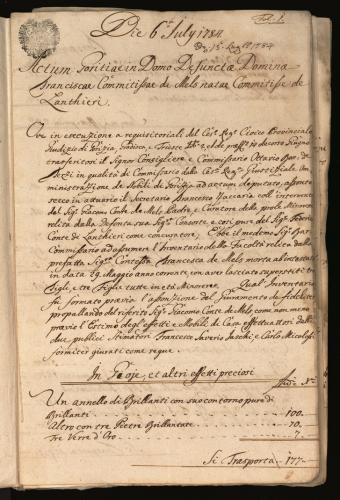 Fol: 1.
Die 6.ta July 1784
Dg. 15. Lug.o 1784
Actum Goritiae in Domo Defunctae Dominae
Franciscae Commitissae de Mels natae Commitissae de
Lanthieri.
Ove in esecuzione a requisitoriali del Ces.o Reg.o Civico Provinciale
Giudizio di Gorizia, Gradisca, e Trieste
trasferitosi il Signor Consigliere, e Commissario Ottavio Bar: de
Terzi in qualità di Commissario della Ces.a Reg.a Giustiziale Am-
ministrazione de Nobili di Gorizia ad actum deputato, assunto
secco in attuario il Segretario Francesco Vaccaria coll' intervento
del Sig.r Giacomo Conte de Mels Padre, e Curatore della prole Minore
relita dalla Defonta sua Sig.ra Consorte, e così pure del Sig.r
Conte di Lanthieri come concuratore; Esso il medemo Sig.r Bar:
Commissario ad assumere l'Inventario della Facoltà relita dalla
prefatta Sig.ra Contessa Francesca de Mels morta ab intestato
in data 29. Maggio anno corrente, con aver lasciato superstiti tre
Figli, e tre Figlie tutte in età Minorene. Qual Inventario
fu formato previa l'aponzione del Giuramento de fidelitate
propallando del riferito Sig.r Giacomo Conte de Mels, come non meno
previo l'Estimo degl'effetti, e Mobili di Casa effettuati dalli
due publici Stimatori Francesco Saverio Jacchi, e Carlo Micolgli
formiter giurati come segue.
In Gioje, et altri effetti preciosi
Un annello di Brillanti con suo contorno pure di
Brillanti 100.
Altro con tre Pietre Brillantate 70.
Tre Verre d'Oro 7.
Si Trasporta 177.